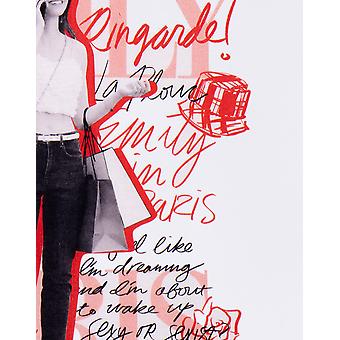 Ringarde!
la Plouc
Emily
in
Paris
feel like
I'm dreaming
and I'm about
to wake up
sexy or